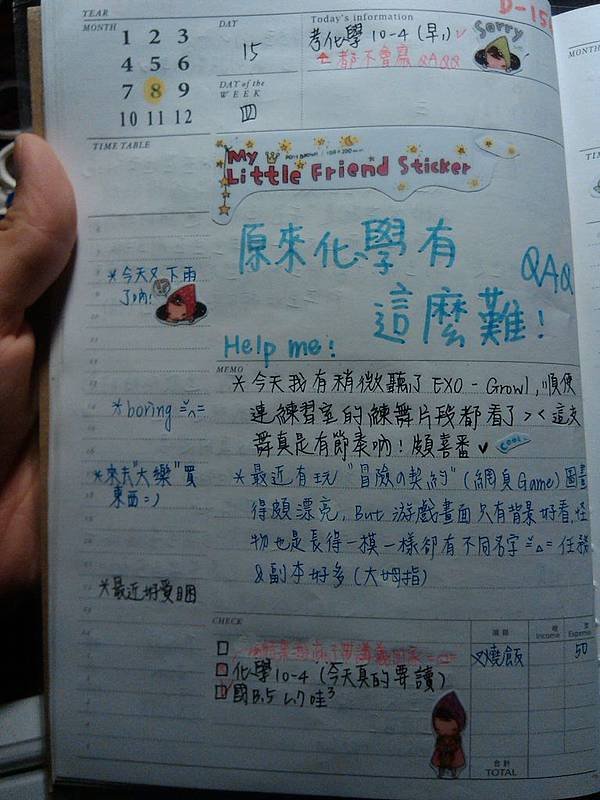 YEAR
MONTH
1 2 3
4 5 6
7 8 9
10 11 12
DAY
15
DAY of the
WEEK
四
Today's information
D-15
考化學 10-4 (早)
都不會寫 QAQQ
Sorry
MONTH
TIME TABLE
My
Little Friend Sticker
原來化學有
QAQ
這麼難!
Help me!
*今天又下雨
了吶!
*boring =^=
*來去"大樂"買
東西=)
*最近好愛睏
MEMO
*今天我有稍微聽了 EXO - Growl, 順便
連練習室的練舞片段都看了 >< 這支
舞真是有節奏吶! 頗喜番
Cool
*最近有玩 "冒險の契約" (網頁Game) 圖畫
得頗漂亮, But 游戲畫面只有背景好看, 怪
物也是長得一模一樣卻有不同名字 =△= 任務
&副本好多 (大姆指)
CHECK
化學 10-4 (今天真的要讀)
項目
Income
支
Expense
叉燒飯
50
合計
TOTAL